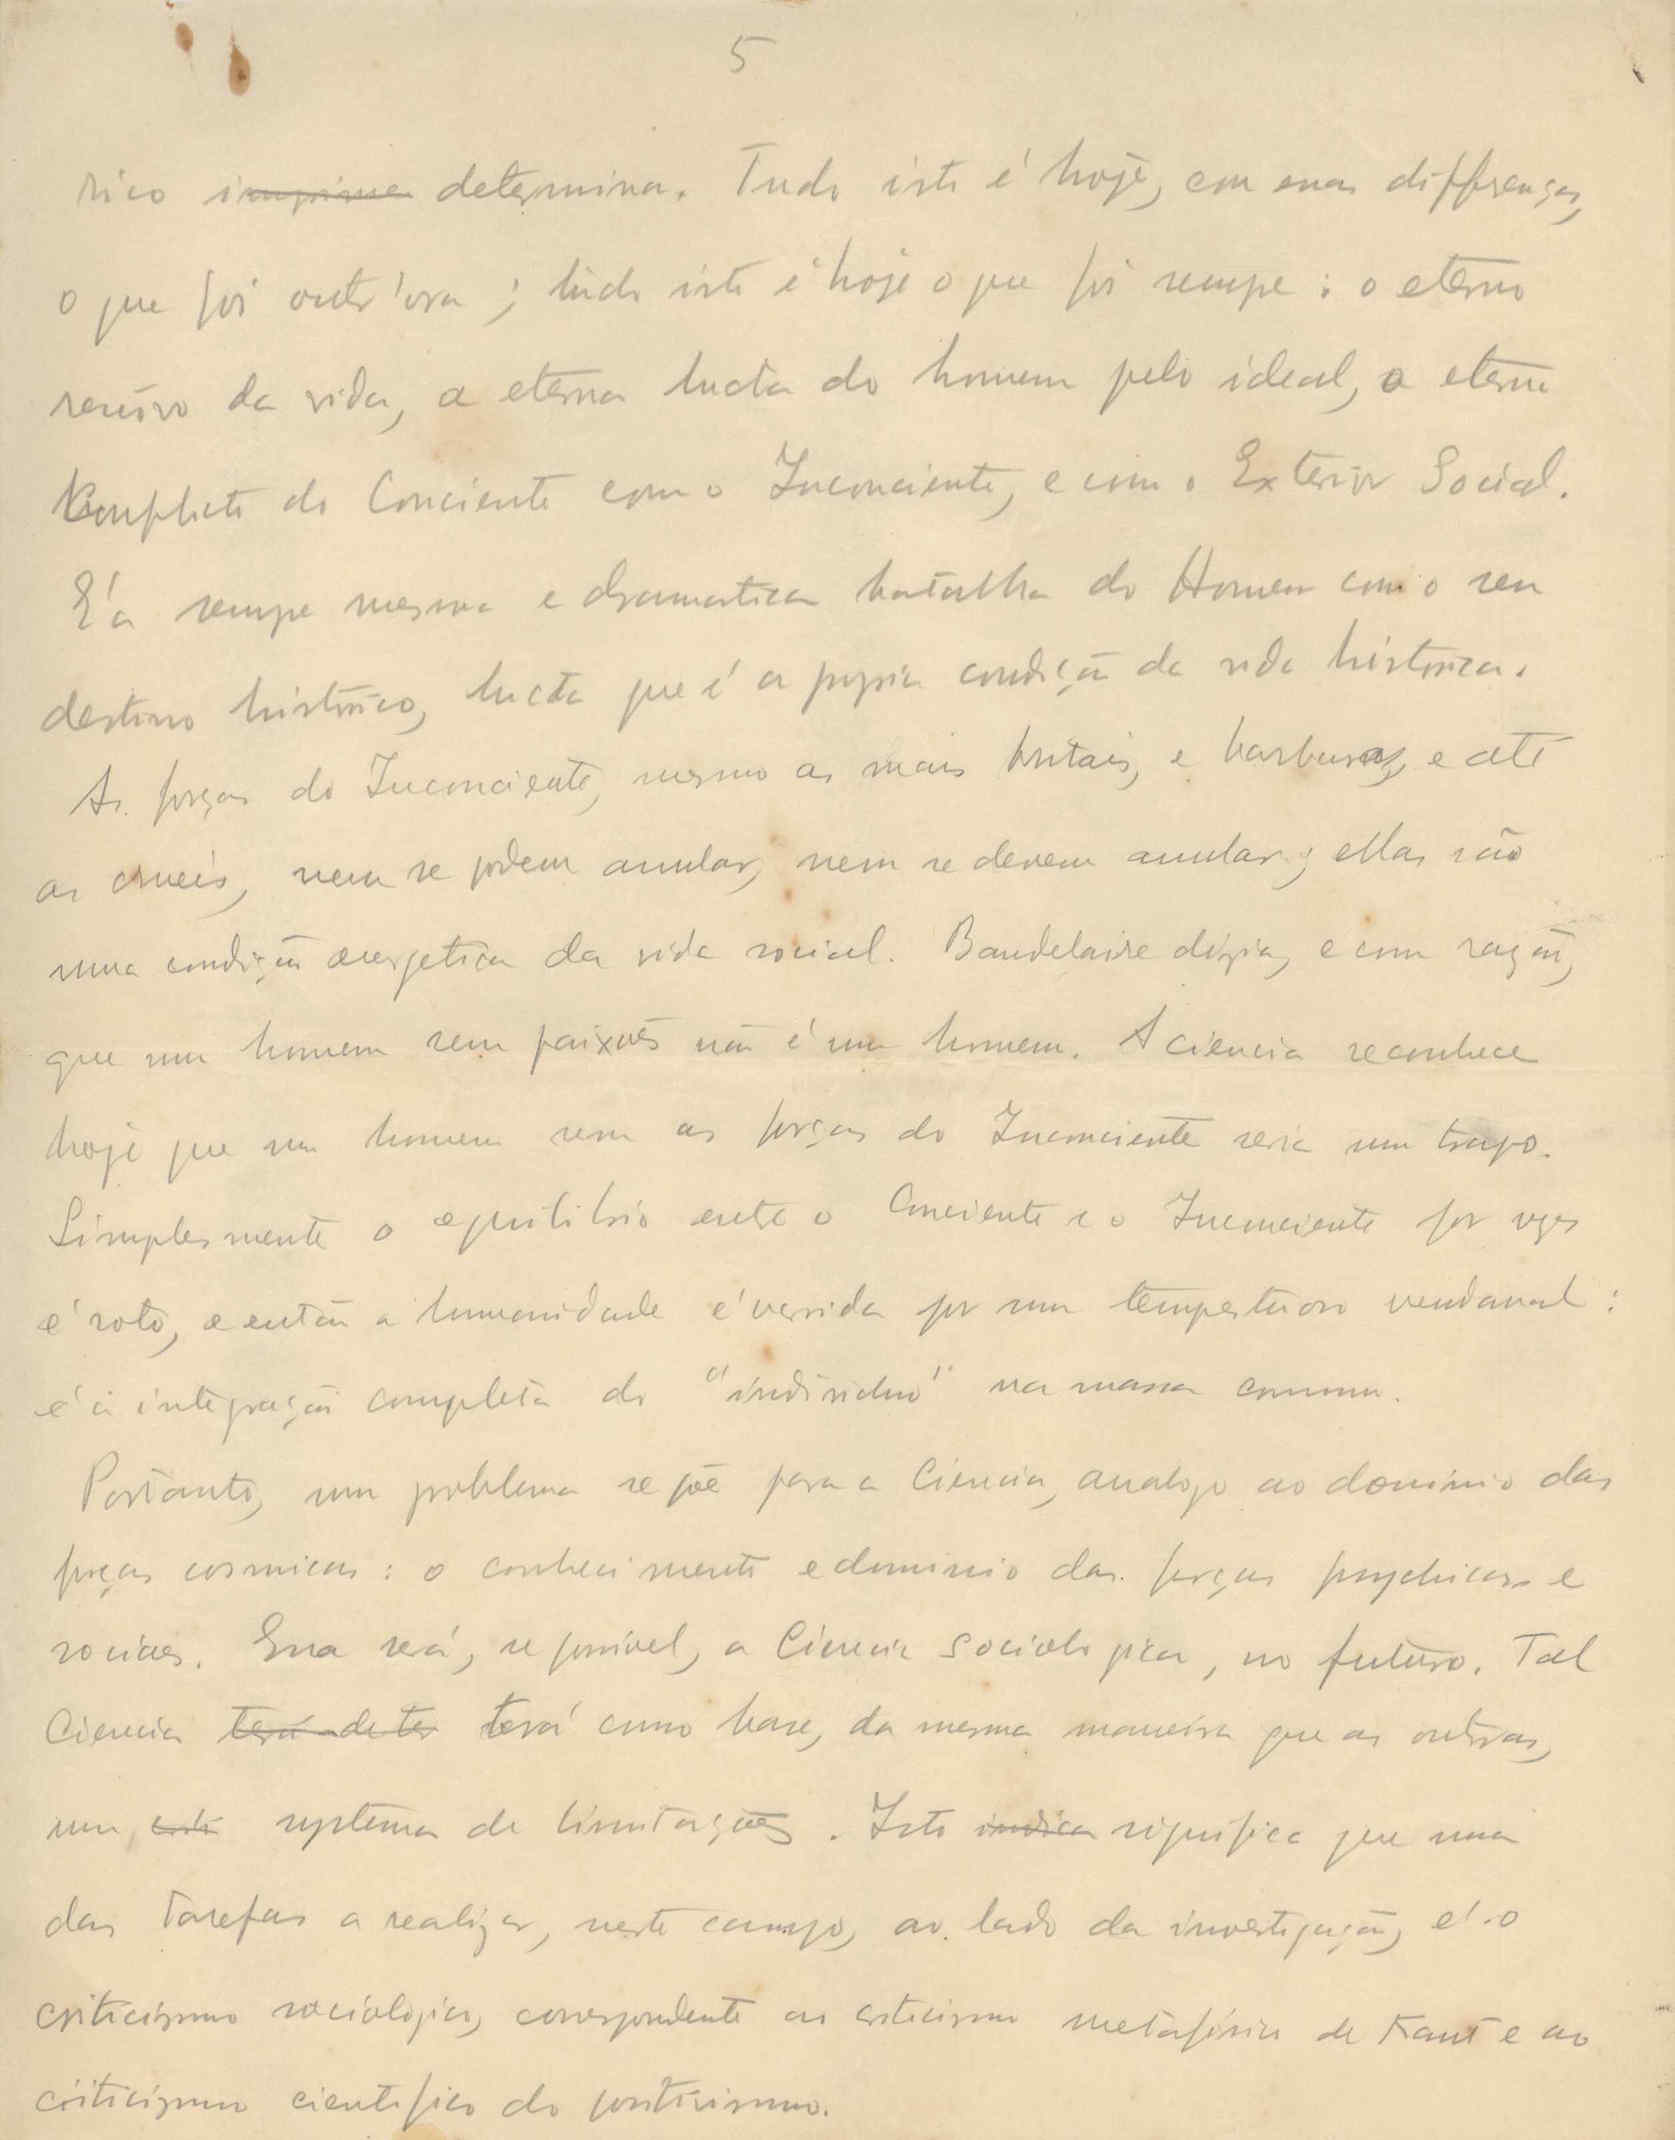 5
rico imprime determina. Tudo isto é hoje, com suas differenças,
o que foi outr'ora; tudo isto é hoje o que foi sempre: o eterno
da vida, a eterna lucta do homem pelo ideal, o eterno
Conflicto do Conciente com o Inconciente, e com o Exterior Social.
E' a sempre mesma e dramatica batalha do Homem com o seu
destino histórico, lucta que é a propria condição da vida histórica.
As forças do Inconciente, mesmo as mais brutais, e barbaras, e até
as crueis, nem se podem anular, nem se devem anular; ellas são
uma condição energetica da vida social. Baudelaire dizia, e com razão,
que um homem sem paixões não é um homem. A ciencia reconhece
hoje que um homem sem as forças do Inconciente seria um trapo.
Simplesmente o equilibrio entre o Conciente e o Inconciente por vezes
é roto, e então a humanidade é varrida por um tempestuoso vendaval:
é a integração completa do "individuo" na massa commum.
Portanto, um problema se põe para a Ciencia, analogo ao dominio das
forças cosmicas: o conhecimento e dominio das forças psychicas e
sociaes. Essa será, se possivel, a Ciencia Sociologica, no futuro. Tal
Ciencia terá de ter terá como base, da mesma maneira que as outras,
um systema de limitações. Isto indica significa que uma
das tarefas a realizar, neste campo, ao lado da investigação, é o
criticismo sociologico, correspondente ao criticismo metafisico de Kant e ao
criticismo cientifico do positivismo.